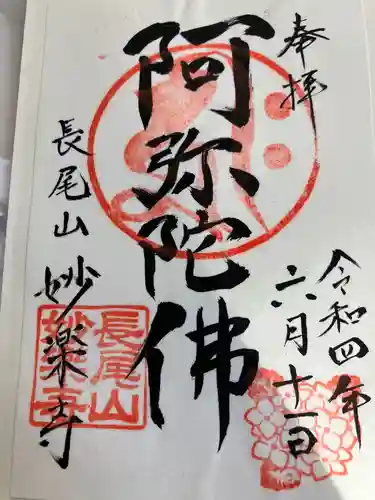 奉拝
令和四年
六月十一日
阿弥陀佛
長尾山
妙楽寺
長尾山
妙楽寺